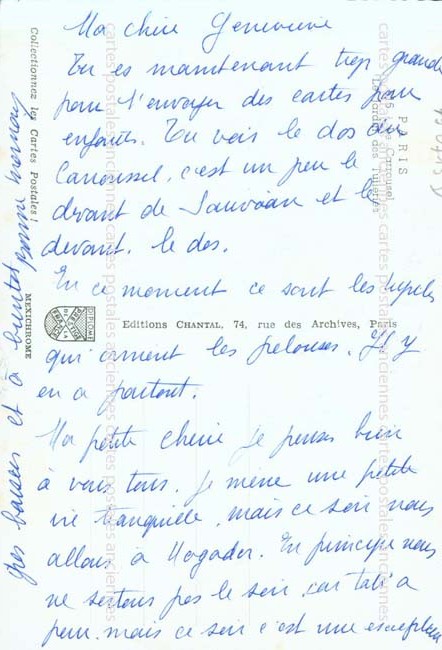 Ma chère Geneviève
Tu es maintenant trop grande
pour t'envoyer des cartes pour
enfants. Tu vois le dos du
Carroussel, c'est un peu le
devant de et le
devant. le dos.
En ce moment ce sont les tulipes
qui ornent les pelouses. Il y
en a partout.
Ma petite chérie je pense bien
à vous tous. je mène une petite
vie tranquille, mais ce soir nous
allons à Mogador. En principe nous
ne sortons pas le soir, car tati a
peur. mais ce soir c'est une exception
gros baisers et à bientôt
Collectionnez les Cartes Postales !
MEXICHROME
DIPLOME
PRESTIGE
DE LA
FRANCE
Editions CHANTAL, 74, rue des Archives, Paris
PARIS
Carrousel
Jardin des Tuileries
cartes postales anciennes